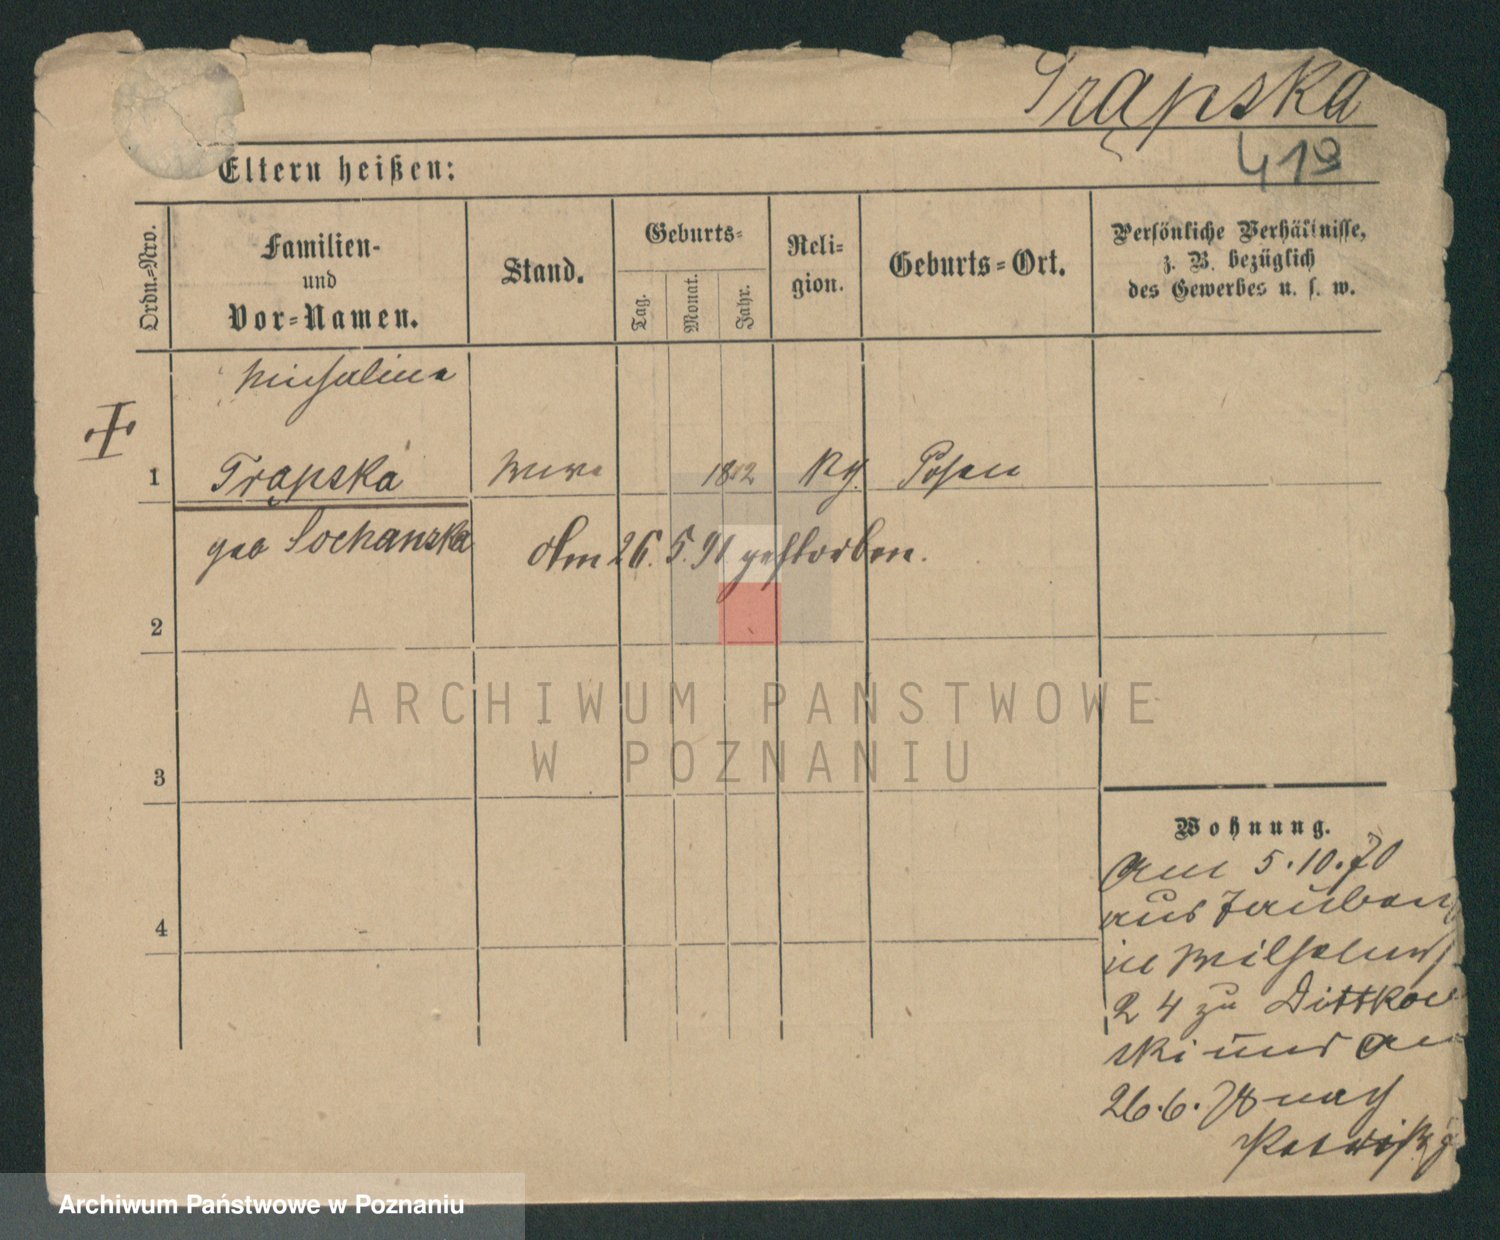 Trąpska
419
Eltern heißen:
Ordn.=Nro.
Familien-
und
Vor=Namen.
Stand.
Geburts=
Tag.
Monat.
Jahr.
Reli=
gion.
Geburts=Ort.
Persönliche Verhältnisse,
z. B. bezüglich
des Gewerbes u. s. w.
Michalina
1 Trąpska Wwe 1812 Posen
geb Sochanska Am 26. 5. 91 gestorben.
2
3
4
ARCHIWUM PAŃSTWOWE
W POZNANIU
Wohnung.
Am 5.10.70
aus Tauben
in Wilhelms
24 zu Dittkow
ski und am
26.6.78 nach
Archiwum Państwowe w Poznaniu